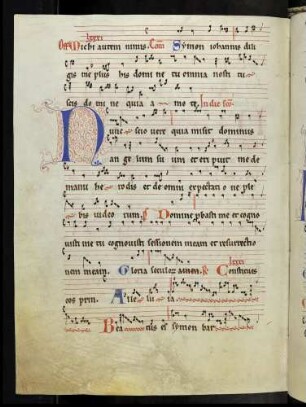 lxxxi
Off Michi autem nimis. Com Symon iohannis dili
gis me plus his domine tu omnia nosti tu
scis domine quia amo te. In die
Nunc scio vere quia misit dominus
angelum suum et eripuit me de
manu herodis et de omni expectatione ple
bis iudeorum. Ps Domine probasti me et cogno
uisti me tu cognouisti sessionem meam et resurrectio
nem meam. Gloria seculorum amen. Constitues
eos prin. Alleluia
Beatus es symon bar